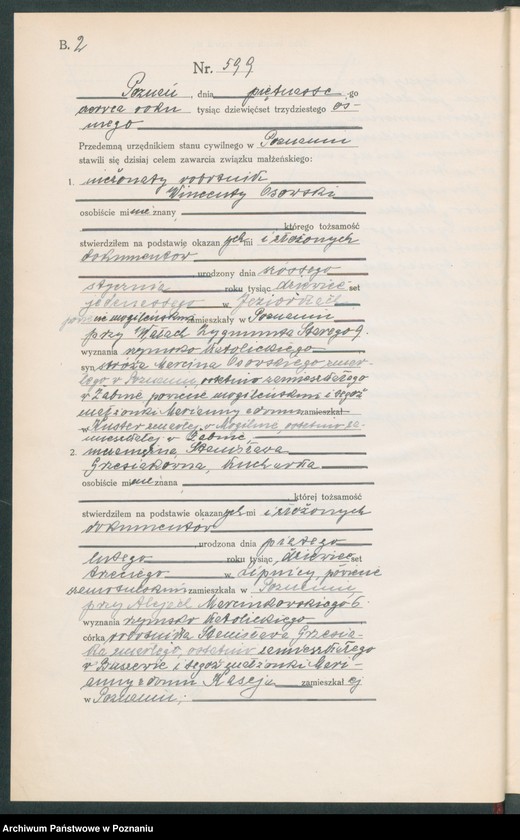 B. 2
Nr. 599
Poznań, dnia piętnastego
czerwca roku tysiąc dziewięćset trzydziestego ós-
mego
Przedemną urzędnikiem stanu cywilnego w Poznaniu
stawili się dzisiaj celem zawarcia związku małżeńskiego:
1. nieżonaty robotnik
Wincenty Osowski
osobiście mi nieznany
którego tożsamość
stwierdziłem na podstawię okazanych mi i złożonych
dokumentów
urodzony dnia ósmego
stycznia roku tysiąc dziewięćset
jedenastego w Jeziorkach
powiecie mogileńskim zamieszkały w Poznaniu
przy Wałach Zygmunta Starego 9.
wyznania rzymsko katolickiego
syn stróża Marcina Osowskiego zmar-
łego w Poznaniu, ostatnio zamieszkałego
w Żabnie powiecie mogileńskim i tegoż
małżonki Marianny z domu zamieszkał
w Kuster zmarłej w Mogilnie, ostatnio za-
mieszkałej w Żabnie
2. niezamężna Stanisława
Grzesiakówna, kucharka
osobiście mi nieznana
której tożsamość
stwierdziłem na podstawie okazanych mi i złożonych
dokumentów
urodzona dnia piątego
lutego roku tysiąc dziewięćset
trzeciego w Lipnicy, powiecie
szamotulskim zamieszkała w Poznaniu
przy Alejach Marcinkowskiego 6.
wyznania rzymsko katolickiego
córka robotnika Stanisława Grzesia-
ka zmarłego, ostatnio zamieszkałego
w i tegoż małżonki Mari-
anny z domu Kaseja zamieszkałej
w Poznaniu;
Archiwum Państwowe w Poznaniu